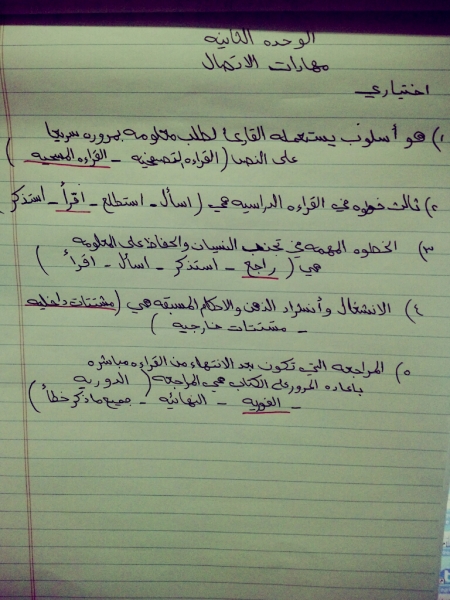 الوحده الثانيه
مهارات الاتصال
اختياري
١) هو أسلوب يستعمله القارئ لطلب معلومه بمروره سريعا
على النص (القراءه التصفحيه - القراءه المسحيه)
٢) ثالث خطوه في القراءه الدراسيه هي (اسأل - استطلع - اقرأ - استذكر)
٣) الخطوه المهمه في تجنب النسيان والحفاظ على المعلومه
هي (راجع - استذكر - اسأل - اقرأ)
٤) الانشغال وأنشراد الذهن والاحكام المسبقه هي (مشتتات داخليه
- مشتتات خارجيه)
٥) المراجعه التي تكون بعد الانتهاء من القراءه مباشره
باعاده المرور على الكتاب هي المراجعه (الدوريه
- الفوريه - النهائيه - جميع ماذكر خطأ)